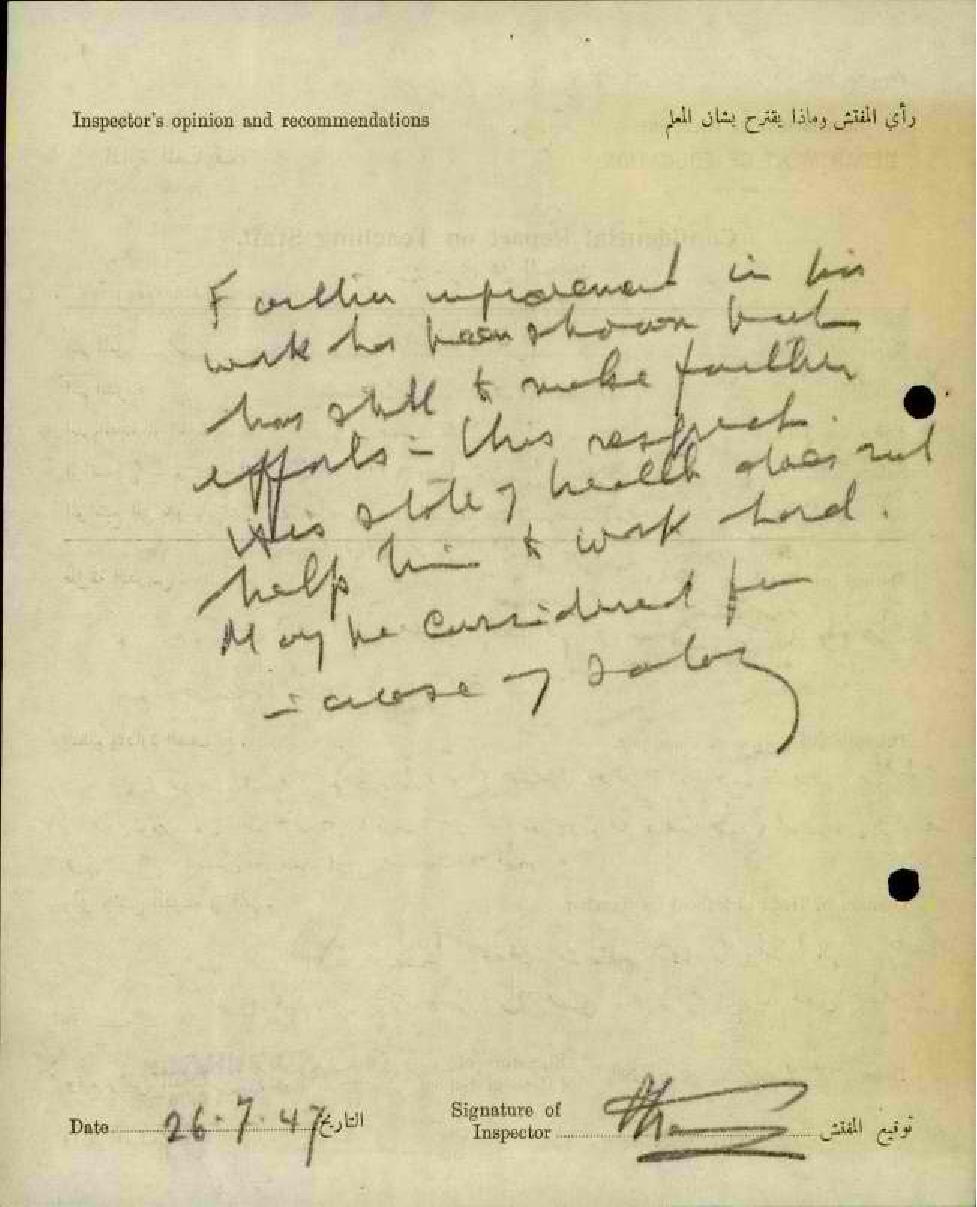 Inspector's opinion and recommendations رأي المفتش وماذا يقترح بشان المعلم
Further improvement in his
work has been shown but
has still to make further
efforts in this respect.
His state of health does not
help him to work hard.
May be considered for
increase of salary
Date 26-7-47 التاريخ
Signature of
Inspector توقيع المفتش